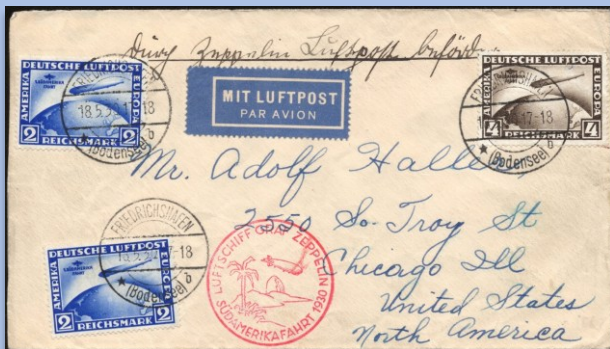 Durch Zeppelin Luftpost
DEUTSCHE LUFTPOST
AMERIKA
EUROPA
2 REICHSMARK 2
FRIEDRICHSHAFEN
18.5. 17-18
(Bodensee) b
MIT LUFTPOST
PAR AVION
DEUTSCHE LUFTPOST
AMERIKA
EUROPA
4 REICHSMARK 4
FRIEDRICHSHAFEN
17-18
(Bodensee) b
Mr. Adolf Halle
2550 So. Troy St
Chicago Ill
United States
North America
DEUTSCHE LUFTPOST
AMERIKA
EUROPA
2 REICHSMARK 2
FRIEDRICHSHAFEN
17-18
(Bodensee) b
LUFTSCHIFF GRAF ZEPPELIN
SÜDAMERIKAFAHRT 1930